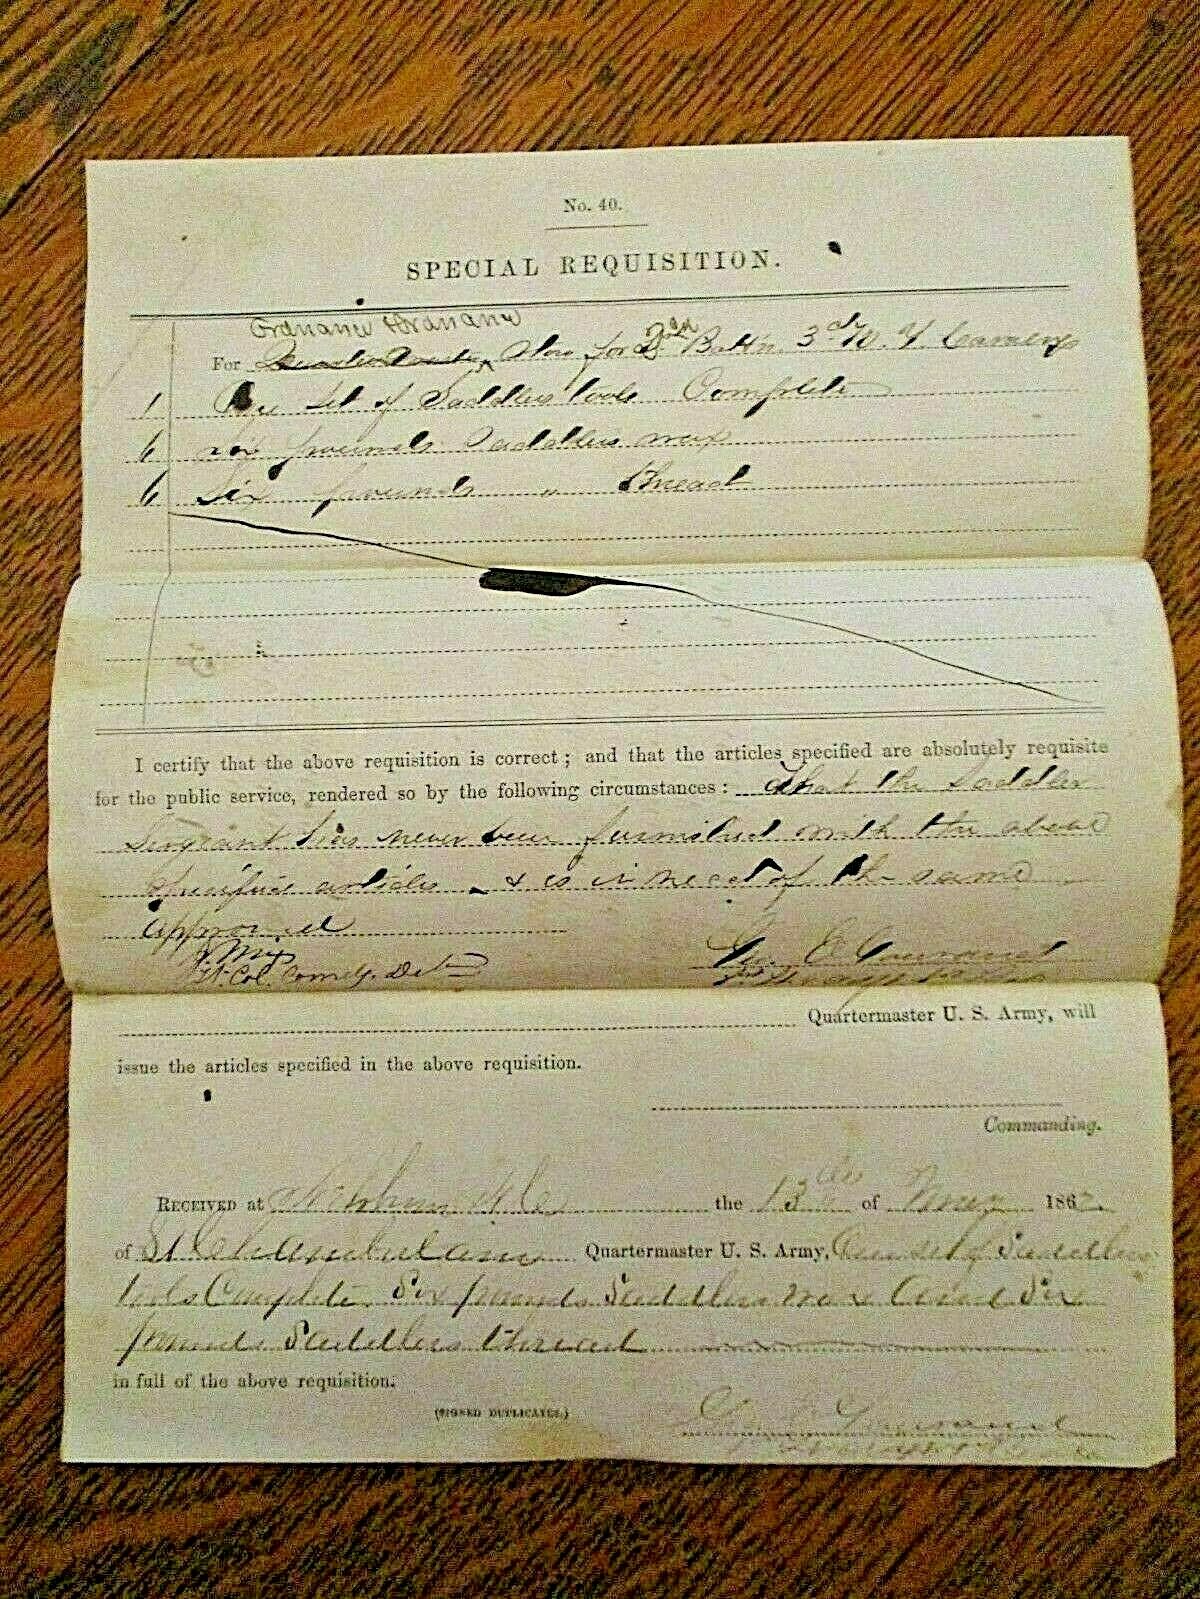 No. 40.
SPECIAL REQUISITION.
Ordnance & Ordnance
For Stores for 2nd Battn. 3rd N.Y. Cavalry
1 One Set of Saddlers tools Complete
6 Six pounds Saddlers wax
6 Six pounds " thread
I certify that the above requisition is correct; and that the articles specified are absolutely requisite
for the public service, rendered so by the following circumstances: That the Saddler
Sergeant has never been furnished with the above
articles & is in need of the same
Approved
Lt. Col. Comdg. Det
Quartermaster U. S. Army, will
issue the articles specified in the above requisition.
Commanding.
RECEIVED at the 13th of 1862
of Quartermaster U. S. Army, One set of Saddlers
tools Complete. Six pounds Saddlers wax and Six
pounds Saddlers thread
in full of the above requisition.
(SIGNED DUPLICATES.)